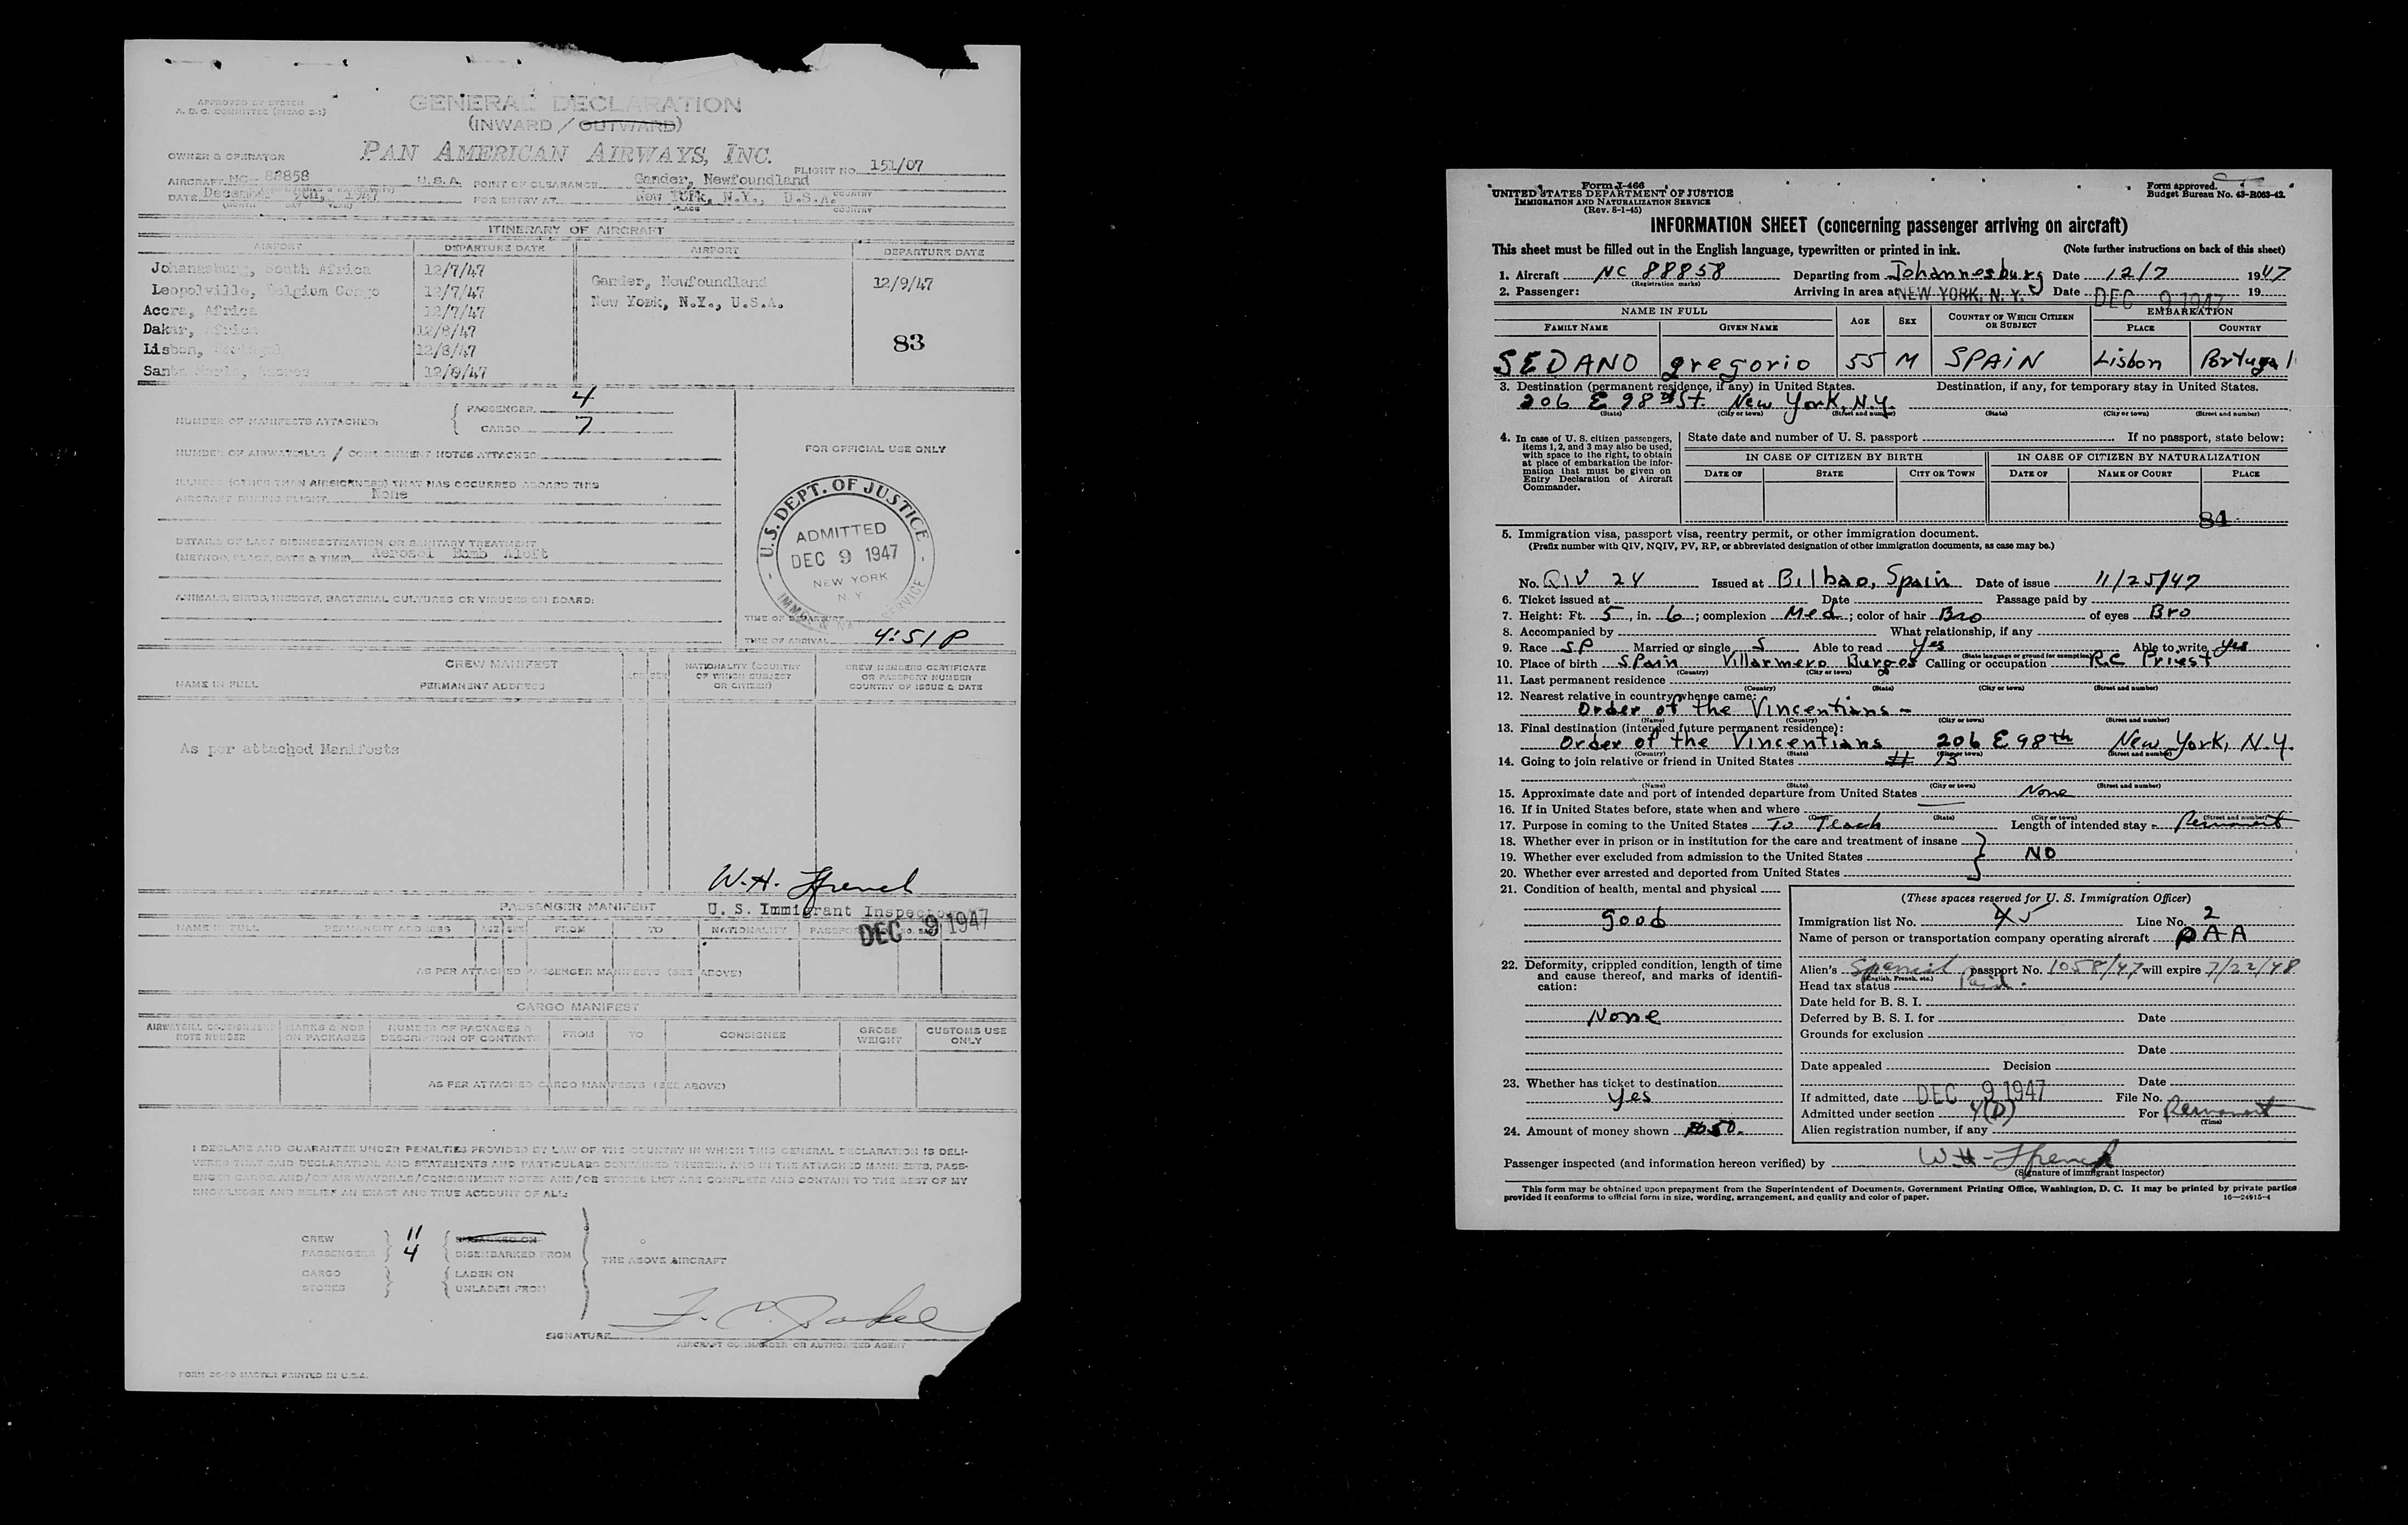 APPROVED BY SYSTEM
A. D. C. COMMITTEE (PICAO 2-1)
GENERAL DECLARATION
(INWARD / OUTWARD)
OWNER & OPERATOR PAN AMERICAN AIRWAYS, INC. FLIGHT NO. 151/07
AIRCRAFT NC- 88858 U.S.A. POINT OF CLEARANCE Gander, Newfoundland
DATE December 9th, 1947 FOR ENTRY AT New York, N.Y., U.S.A. COUNTRY
(MONTH DAY YEAR) PLACE COUNTRY
ITINERARY OF AIRCRAFT
AIRPORT DEPARTURE DATE AIRPORT DEPARTURE DATE
Johannesburg, South Africa 12/7/47
Gander, Newfoundland 12/9/47
Leopolville, Belgium Congo 12/7/47
New York, N.Y., U.S.A.
Accra, Africa 12/7/47
Dakar, Africa 12/8/47
83
Lisbon, Portugal 12/8/47
Santa Maria, Azores 12/8/47
NUMBER OF MANIFESTS ATTACHED: PASSENGER 4
CARGO 7
NUMBER OF AIRWAYBILLS / CONSIGNMENT NOTES ATTACHED
FOR OFFICIAL USE ONLY
ILLNESS (OTHER THAN AIRSICKNESS) THAT HAS OCCURRED ABOARD THIS
AIRCRAFT DURING FLIGHT None
DETAILS OF LAST DISINSECTIZATION OR SANITARY TREATMENT
(METHOD, PLACE, DATE & TIME) Aerosol Bomb Aloft
U.S. DEPT. OF JUSTICE
ADMITTED
DEC 9 1947
NEW YORK
N. Y.
ANIMALS, BIRDS, INSECTS, BACTERIAL CULTURES OR VIRUSES ON BOARD:
TIME OF DEPARTURE
TIME OF ARRIVAL 4:51 P
CREW MANIFEST
NAME IN FULL PERMANENT ADDRESS AGE SEX NATIONALITY (COUNTRY OF WHICH SUBJECT OR CITIZEN) CREW MEMBERS CERTIFICATE OR PASSPORT NUMBER COUNTRY OF ISSUE & DATE
As per attached Manifests
W.H. Ffrench
U. S. Immigrant Inspector
DEC 9 1947
PASSENGER MANIFEST
NAME IN FULL PERMANENT ADDRESS AGE SEX FROM TO NATIONALITY PASSPORT
AS PER ATTACHED PASSENGER MANIFESTS (SEE ABOVE)
CARGO MANIFEST
AIRWAYBILL CONSIGNMENT NOTE NUMBER MARKS & NOS ON PACKAGES NUMBER OF PACKAGES & DESCRIPTION OF CONTENTS FROM TO CONSIGNEE GROSS WEIGHT CUSTOMS USE ONLY
AS PER ATTACHED CARGO MANIFESTS (SEE ABOVE)
I DECLARE AND GUARANTEE UNDER PENALTIES PROVIDED BY LAW OF THE COUNTRY IN WHICH THIS GENERAL DECLARATION IS DELI-
VERED THAT SAID DECLARATION, AND STATEMENTS AND PARTICULARS CONTAINED THEREIN, AND IN THE ATTACHED MANIFESTS, PASS-
ENGER CARGO, AND/OR AIR WAYBILLS/CONSIGNMENT NOTES AND/OR STORES LIST ARE COMPLETE AND CONTAIN TO THE BEST OF MY
KNOWLEDGE AND BELIEF AN EXACT AND TRUE ACCOUNT OF ALL:
CREW 11 EMBARKED ON
PASSENGERS 4 DISEMBARKED FROM THE ABOVE AIRCRAFT
CARGO LADEN ON
STORES UNLADEN FROM
SIGNATURE
AIRCRAFT COMMANDER OR AUTHORIZED AGENT
PRINTED IN U.S.A.
Form I-466
UNITED STATES DEPARTMENT OF JUSTICE
IMMIGRATION AND NATURALIZATION SERVICE
(Rev. 8-1-45)
Form approved.
Budget Bureau No. 43-R063-42.
INFORMATION SHEET (concerning passenger arriving on aircraft)
This sheet must be filled out in the English language, typewritten or printed in ink. (Note further instructions on back of this sheet)
1. Aircraft NC 88858 Departing from Johannesburg Date 12/7 1947
(Registration marks)
2. Passenger: Arriving in area at NEW YORK, N. Y. Date DEC 9 1947 19
NAME IN FULL AGE SEX COUNTRY OF WHICH CITIZEN OR SUBJECT EMBARKATION
FAMILY NAME GIVEN NAME PLACE COUNTRY
SEDANO gregorio 55 M SPAIN Lisbon Portugal
3. Destination (permanent residence, if any) in United States. Destination, if any, for temporary stay in United States.
206 E 98th St. New York, N.Y.
(State) (City or town) (Street and number) (State) (City or town) (Street and number)
4. In case of U. S. citizen passengers, items 1, 2, and 3 may also be used, with space to the right, to obtain at place of embarkation the information that must be given on Entry Declaration of Aircraft Commander.
State date and number of U. S. passport If no passport, state below:
IN CASE OF CITIZEN BY BIRTH IN CASE OF CITIZEN BY NATURALIZATION
DATE OF STATE CITY OR TOWN DATE OF NAME OF COURT PLACE
84
5. Immigration visa, passport visa, reentry permit, or other immigration document.
(Prefix number with QIV, NQIV, PV, RP, or abbreviated designation of other immigration documents, as case may be.)
No. QIV 24 Issued at Bilbao, Spain Date of issue 11/25/47
6. Ticket issued at Date Passage paid by
7. Height: Ft. 5, in. 6; complexion Med; color of hair Bro of eyes Bro
8. Accompanied by What relationship, if any
9. Race SP Married or single S Able to read Yes Able to write Yes
(State language or ground for exemption)
10. Place of birth Spain Villarmero Burgos Calling or occupation R.C Priest
(Country) (City or town)
11. Last permanent residence
(Country) (State) (City or town) (Street and number)
12. Nearest relative in country whence came:
Order of the Vincentians -
(Name) (Country) (City or town) (Street and number)
13. Final destination (intended future permanent residence):
Order of the Vincentians 206 E 98th New York, N.Y.
(Country) (State) (City or town) (Street and number)
14. Going to join relative or friend in United States # 13
(Name) (State) (City or town) (Street and number)
15. Approximate date and port of intended departure from United States None
16. If in United States before, state when and where
(State) (City or town) (Street and number)
17. Purpose in coming to the United States To Teach Length of intended stay Permanent
18. Whether ever in prison or in institution for the care and treatment of insane
19. Whether ever excluded from admission to the United States NO
20. Whether ever arrested and deported from United States
21. Condition of health, mental and physical
good
22. Deformity, crippled condition, length of time and cause thereof, and marks of identification:
None
23. Whether has ticket to destination
Yes
24. Amount of money shown 50.
(These spaces reserved for U. S. Immigration Officer)
Immigration list No. Line No. 2
Name of person or transportation company operating aircraft PAA
Alien's Spanish passport No. 1058/47 will expire 7/22/48
(English, French, etc.)
Head tax status Paid.
Date held for B. S. I.
Deferred by B. S. I. for Date
Grounds for exclusion
Date
Date appealed Decision
Date
If admitted, date DEC 9 1947 File No.
Admitted under section 4(D) For Permanent
(Time)
Alien registration number, if any
Passenger inspected (and information hereon verified) by W.H. Ffrench
(Signature of immigrant inspector)
This form may be obtained upon prepayment from the Superintendent of Documents, Government Printing Office, Washington, D. C. It may be printed by private parties
provided it conforms to official form in size, wording, arrangement, and quality and color of paper. 16—24915-4